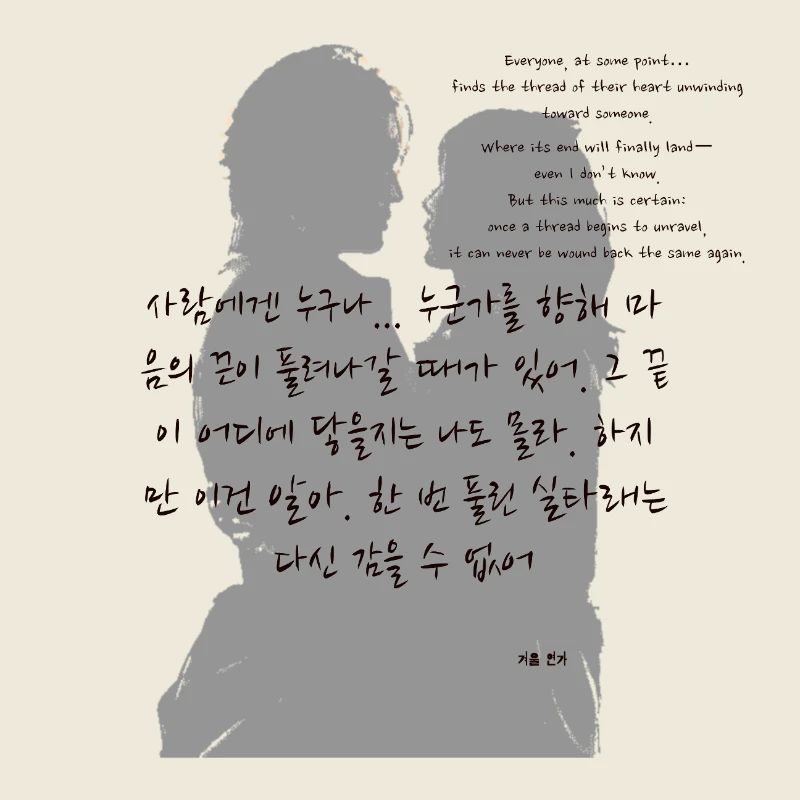 Everyone, at some point...
finds the thread of their heart unwinding
toward someone.
Where its end will finally land—
even I don't know.
But this much is certain:
once a thread begins to unravel,
it can never be wound back the same again.
사람에겐 누구나... 누군가를 향해 마
음의 끈이 풀려나갈 때가 있어. 그 끝
이 어디에 닿을지는 나도 몰라. 하지
만 이건 알아. 한 번 풀린 실타래는
다신 감을 수 없어
겨울 연가